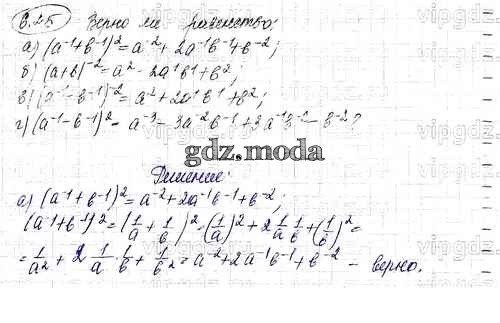 6.25 Верно ли равенство:
а) (a⁻¹+b⁻¹)² = a⁻² + 2a⁻¹b⁻¹+b⁻²;
б) (a+b)⁻² = a² - 2a¹b¹+b²;
в) (a⁻¹-b⁻¹)⁻² = a² + 2a¹b¹+b²;
г) (a⁻¹-b⁻¹)² = a⁻³ - 3a⁻²b⁻¹+3a⁻¹b⁻² - b⁻³?
gdz.moda
Решение:
а) (a⁻¹+b⁻¹)² = a⁻²+2a⁻¹b⁻¹+b⁻²;
(a⁻¹+b⁻¹)² = (1/a + 1/b)² = (1/a)² + 2 1/a 1/b + (1/b)² =
= 1/a² + 2 1/a · 1/b + 1/b² = a⁻²+2a⁻¹b⁻¹+b⁻² - верно.
vipgdz